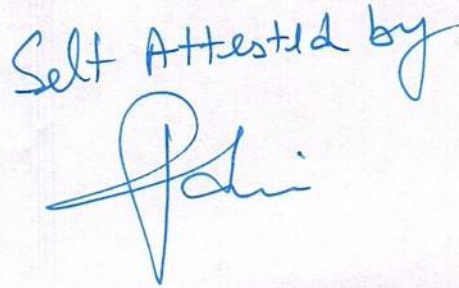 Self Attested by